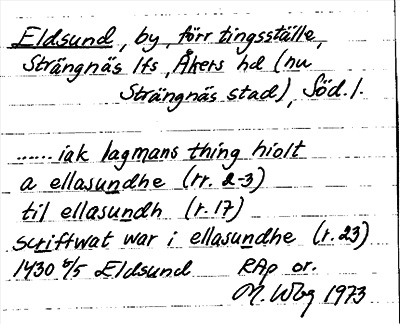 Eldsund, by, förr tingsställe,
Strängnäs lfs, Åkers hd (nu
Strängnäs stad), Söd. l.
...... iak lagmans thing hiolt
a ellasundhe (rr. 2-3)
til ellasundh (r. 17)
scriftwat war i ellasundhe (r. 23)
1430 5/5 Eldsund RAp or.
M. Wbg 1973